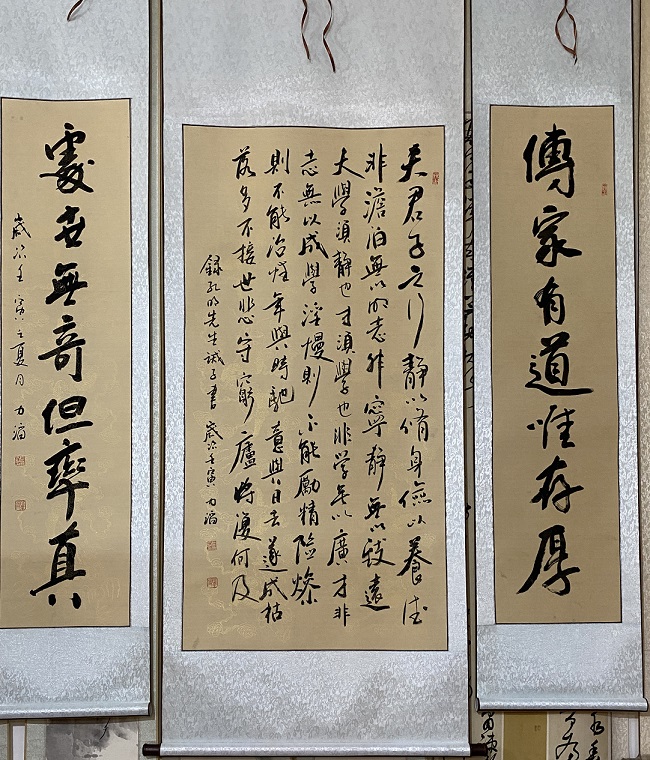 傳家有道惟存厚
夫君子之行靜以脩身儉以養德
非澹泊無以明志非寧靜無以致遠
夫學須靜也才須學也非学無以廣才非
志無以成學淫慢則不能勵精險燥
則不能冶性年與時馳意與日去遂成枯
落多不接世悲守窮廬將復何及
錄孔明先生誡子書 歲次壬寅
處世無奇但率真
歲次壬寅之夏月